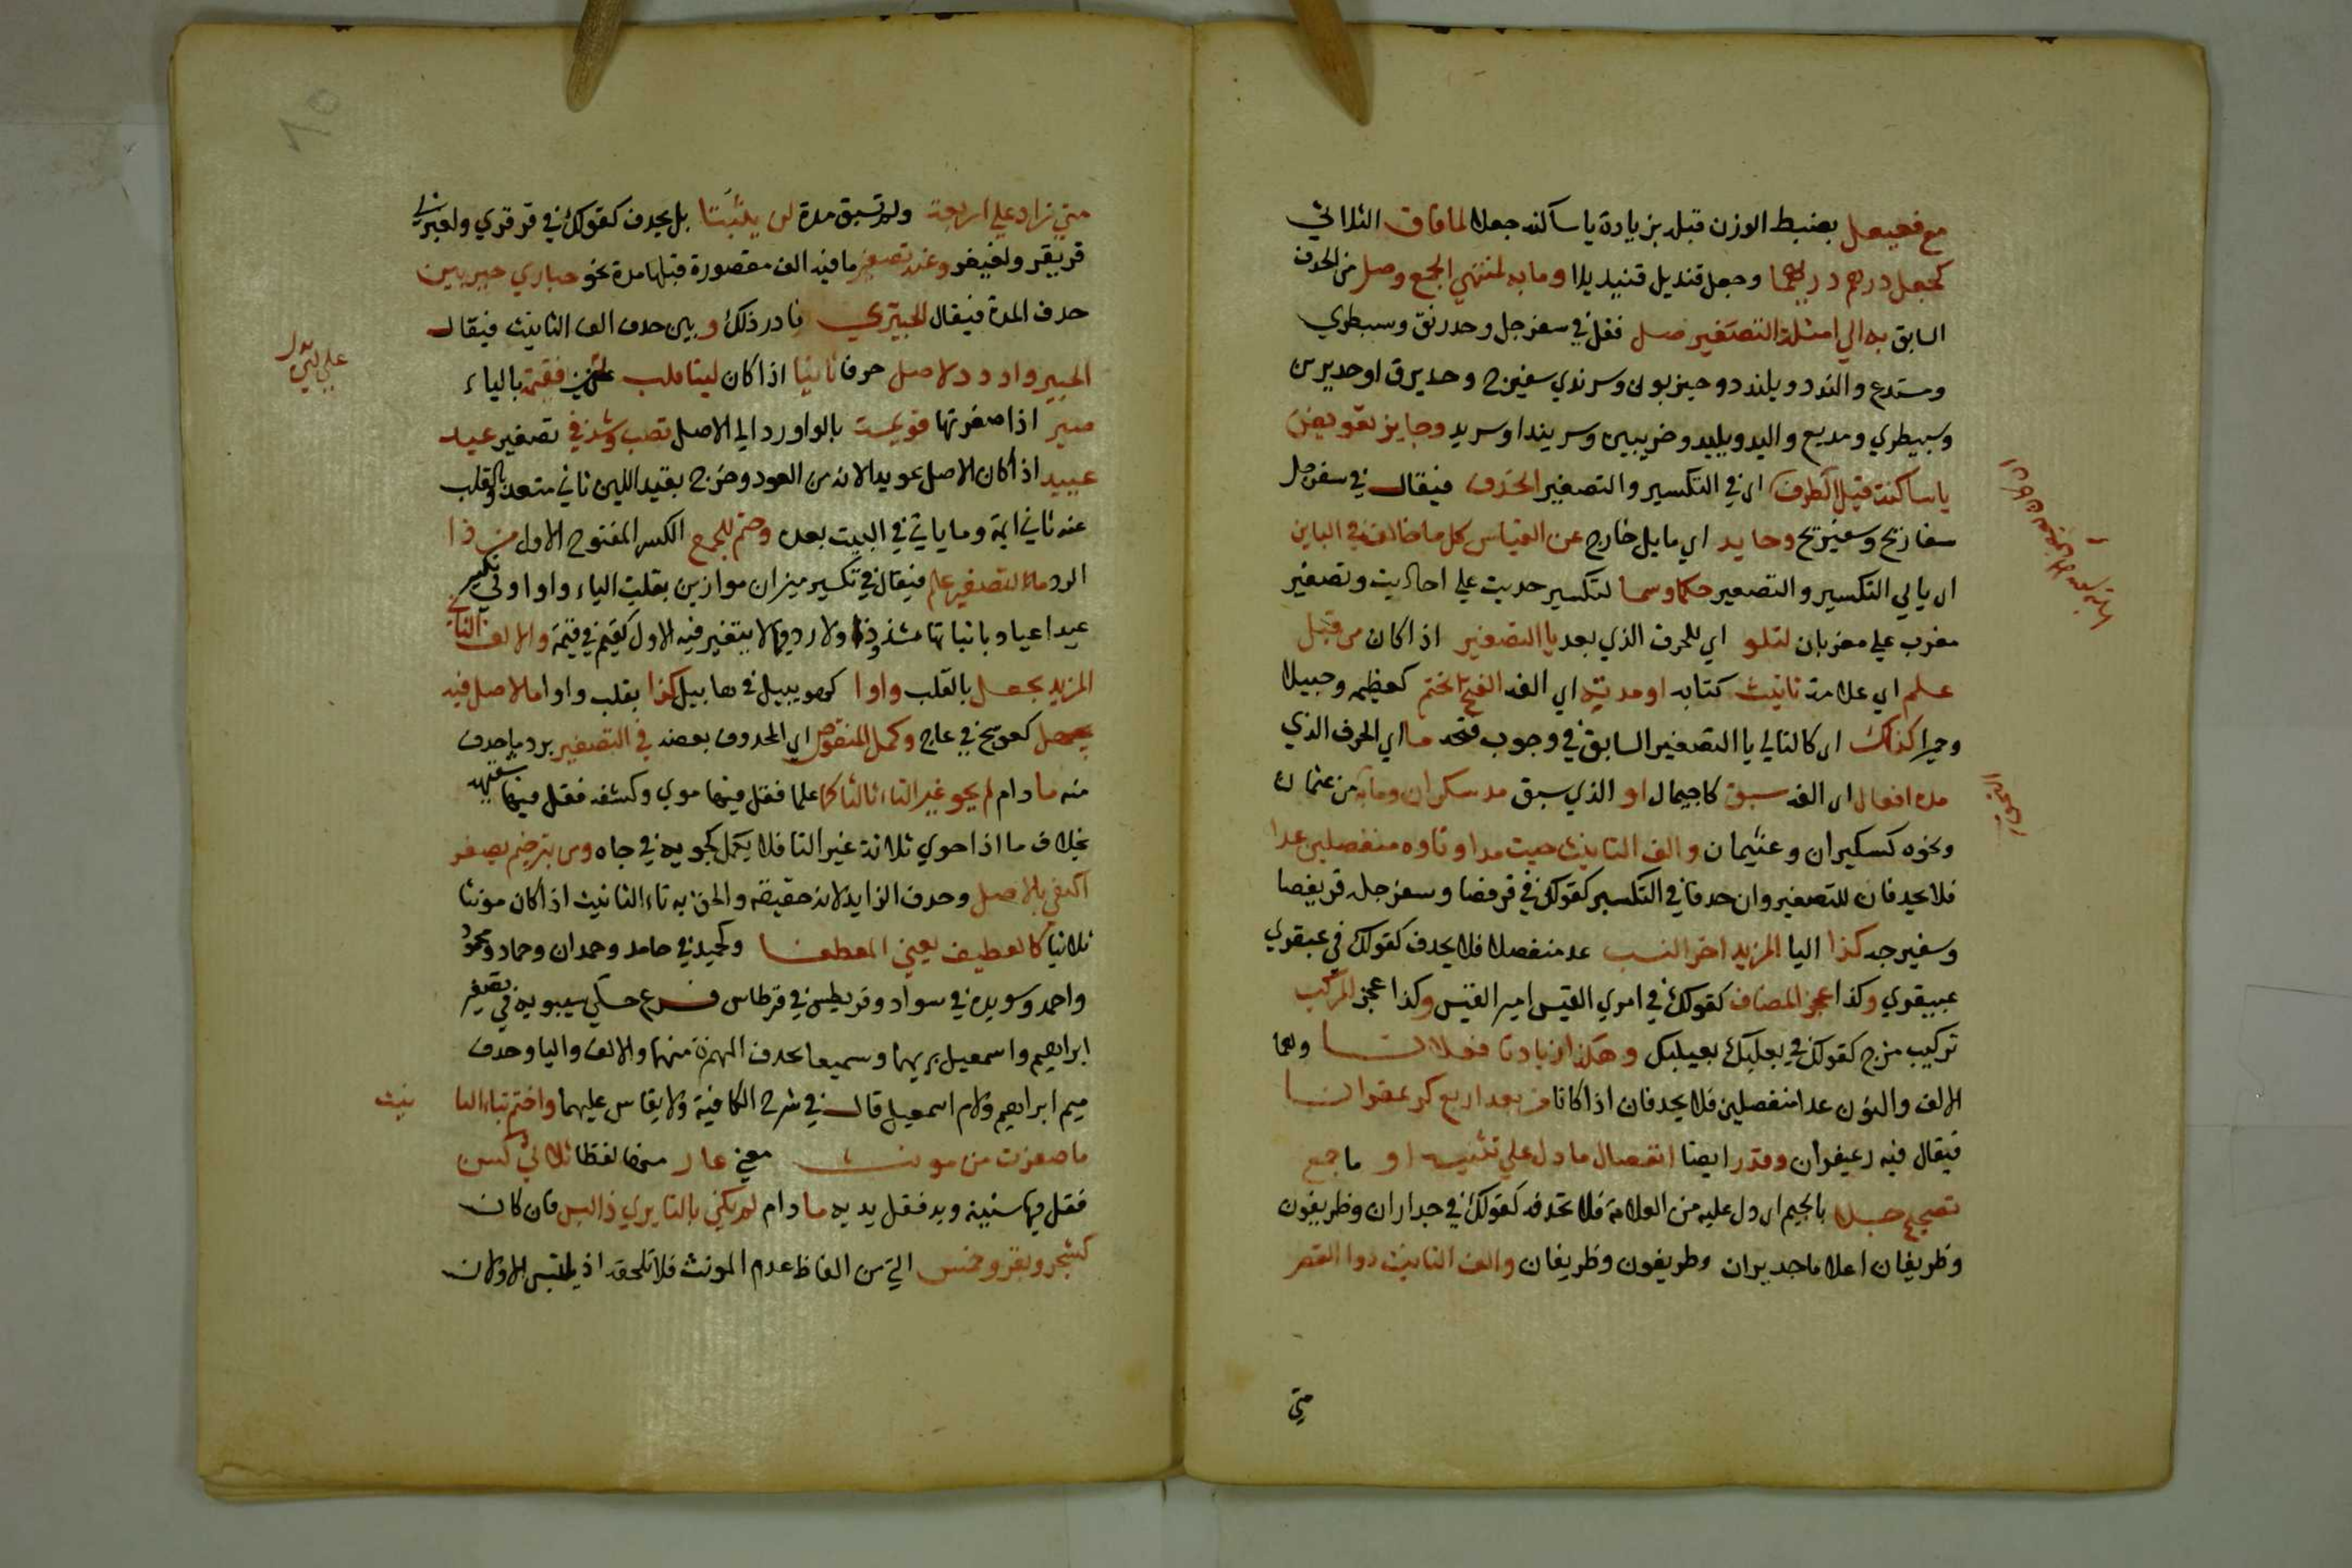 مع فعيعل بضبط الوزن قبله بزيادة يا ساكنه جعلا لما فاق الثلاثي
كجعل درهم دريهما وجعل قنديل قنيديلا وما به لمنتهي الجمع وصل من الحذف
السابق به الي امثلة التصغير صل فقل في سفرجل وحدرنق وسبطري
ومستدع والندد ويلندد وحيزبون وسرندي سفيرج وحديرق او حديرن
وسبيطري ومديع واليد ويليد وحزيبين وسريندا وسريد وجايز تعويض
يا ساكنة قبل الطرف ان في التكسير والتصغير انحذف فيقال في سفرجل
سفاريج وسفيريج وحايد اي مايل خارج عن القياس كل ما خالف في البابين
اي بابي التكسير والتصغير حكما رسما لتكسير حديث علي احاديث وتصغير
مغرب علي مغيربان لتلو اي للحرف الذي بعد يا التصغير اذا كان من قبل
علم اي علامة تانيث كتايه او مدته اي الفه الفتح انحتم كعظيمه وحبيلا
وحميرا كذاك اي كالتالي يا التصغير السابق في وجوب فتحه ما اي الحرف الذي
مدة افعال اي الفه سبق كاجيمال او الذي سبق مد سكران وما به من عثمان
ونحوه كسكيران وعثيمان والف التانيث حيث مدا وتاوه منفصلين عدا
فلا يحذفان للتصغير وان حذفا في التكسير كقولك في قرفصا وسفرجله قريفصا
وسفيرجه كذا اليا المزيد اخر النسب عد منفصلا فلا يحذف كقولك في عبقري
عبيقري وكذا عجز المضاف كقولك في امري القيس امير القيس وكذا عجز المركب
تركيب مزج كقولك في بعلبك بعيلبك وهكذا زيادتا فعلانا وهما
الالف والنون عدا منفصلين فلا يحذفان اذا كانا من بعد اربع كزعفرانا
فيقال فيه زعيفران وقدر ايضا انفصال ما دل علي تثنيه او ما جمع
تصحيح جلا بالجيم اي دل عليه من العلامة فلا تحذفه كقولك في جداران وظريفون
وظريفان اعلاما جديران وظريفون وظريفان والف التانيث ذوا القصر
متي
متي زاد علي اربعة ولم تسبق مدة لن يثبتا بل يحذف كقولك في قرقري ولغيزي
قريقر ولغيغز وعند تصغير ما فيه الف مقصورة قبلها مدة نحو حباري خير بين
حذف المدة فيقال الحبيري فادر ذلك وبين حذف الف التانيث فيقال
الحبير واردد لاصل حرفا ثانيا اذا كان لينا قلب فقيمة بالياء
صير اذا صغرتها قويمة بالواو ردا الي الاصل تصب وشذ في تصغير عيد
عييد اذ كان الاصل عويدا لانه من العود وخرج بقيد اللين ثاني متعد
عنه ثاني ايمة وما ياتي في البيت بعده وحتم للجمع الكسر المفتوح الاول من ذا
الرد ما لتصغير علم فيقال في تكسير ميزان موازين بقلب الياء واوا وفي تكسير
عيد اعياد باثباتها شذوذا ولا رد فيما لا يتغير فيه الاول كقيم في قيمة والالف الثاني
المزيد يجعل بالقلب واوا كهويبيل في هابيل كذا يقلب واوا ما الاصل فيه
يجهل كعويج في عاج وكمل المنقوص اي المحذوف بعضه في التصغير برد ما حذف
منه ما دام لم يحو غير التاء ثالثا كما علما فقل فيها موي وكشفه فقل فيها شفيهه
بخلاف ما اذا حوي ثلاثة غير التا فلا يكمل كجويه في جاه ومن بترخيم يصغر
اكتفي بالاصل وحذف الزايد لانه حقيقه والحق به تاء التانيث اذا كان مونثا
ثلاثيا كالعطيف يعني المعطفا وكحميد في حامد وحمدان وحماد ومحمود
واحمد وسويده في سواد وقريطس في قرطاس فرع حكي سيبويه في تصغير
ابراهيم واسمعيل بريها وسميعا بحذف الهمزة منهما والالف واليا وحذف
ميم ابراهيم ولام اسمعيل قال في شرح الكافية ولا يقاس عليهما واختم بتا التا
نيث
ما صغرت من مونث معني عار منها لفظا ثلاثي كسن
فقل فيها سنينة ويد فقل يديه ما دام لم يكن بالتا يري ذا لبس فان كان
كشجر وبقر وخمس التي من الفاظ عدم المونث فلا تلحقه اذ يلتبس الاولان